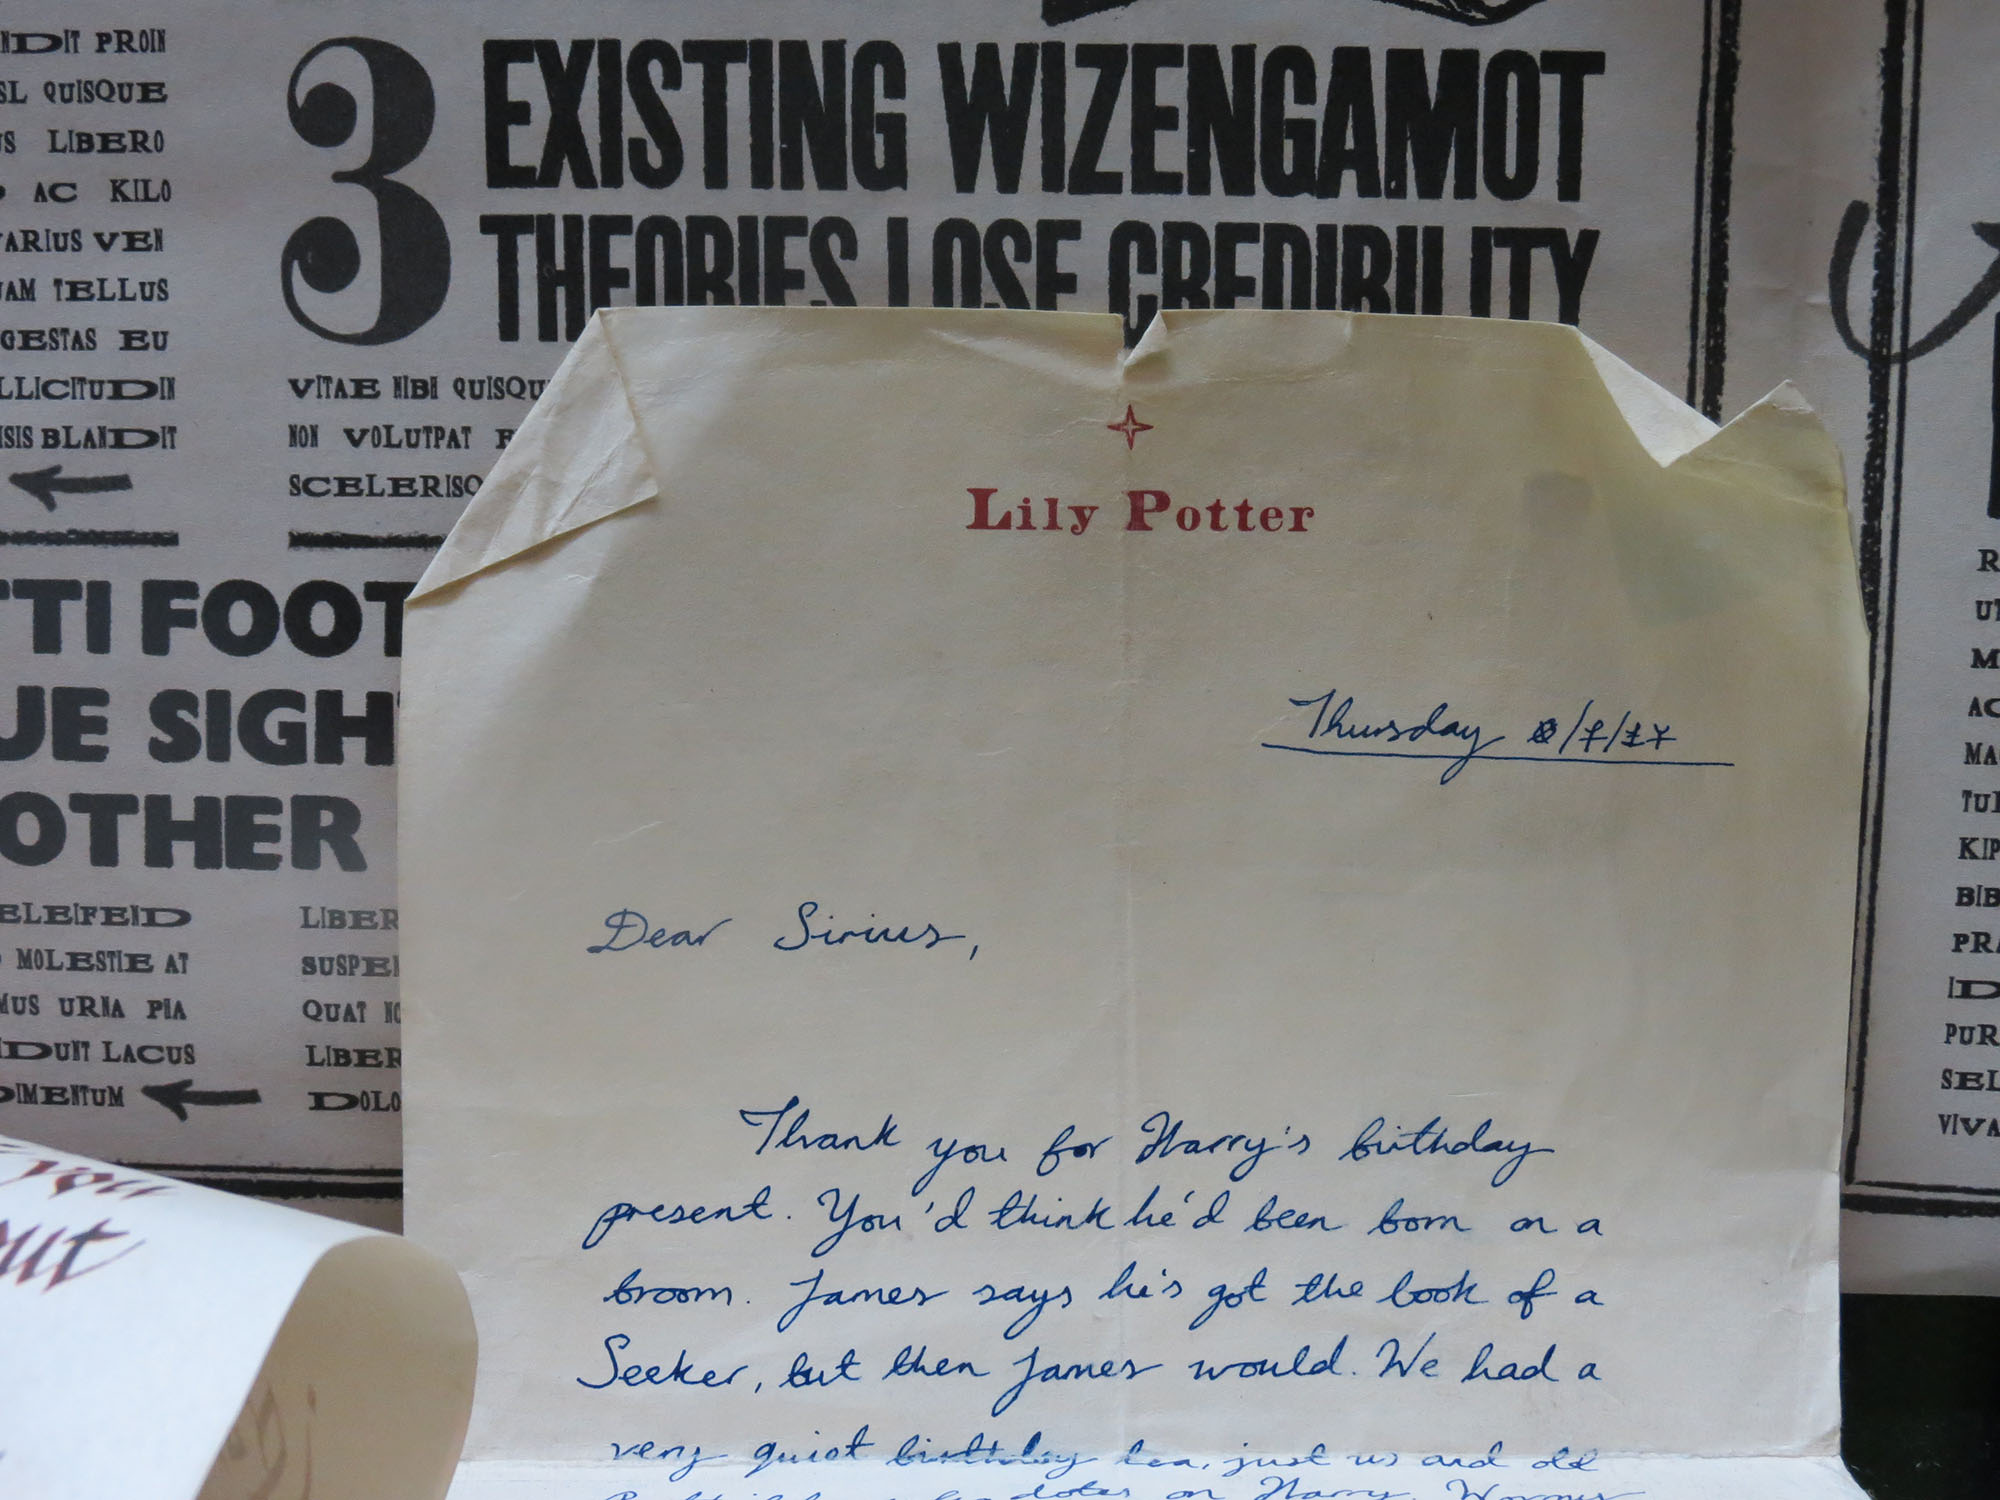 NDIT PROIN
SL QUISQUE
US LIBERO
AC KILO
VARIUS VEN
UAM TELLUS
GESTAS EU
LLICITUDIN
ISIS BLANDIT
3 EXISTING WIZENGAMOT
THEORIES LOSE CREDIBILITY
VITAE NIBH QUISQU
NON VOLUTPAT
SCELERISQ
TTI FOOT
UE SIGH
OTHER
ELEIFEND
MOLESTIE AT
MUS URNA PIA
IDUNT LACUS
DIMENTUM
LIBER
SUSPEN
QUAT NO
LIBER
DOLO
you
out
Lily Potter
Thursday
Dear Sirius,
Thank you for Harry's birthday
present. You'd think he'd been born on a
broom. James says he's got the look of a
Seeker, but then James would. We had a
very quiet birthday tea, just us and old
dotes on Harry.
R
UT
M
AC
MA
TUR
KIP
BIB
PRA
ID
PUR
SEL
VIVA